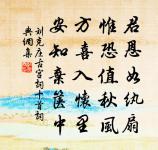 君恩如纨扇
惟恐值秋風
方喜入懷里
安知棄篋中
刘克庄古宮詞十首詞
典網集